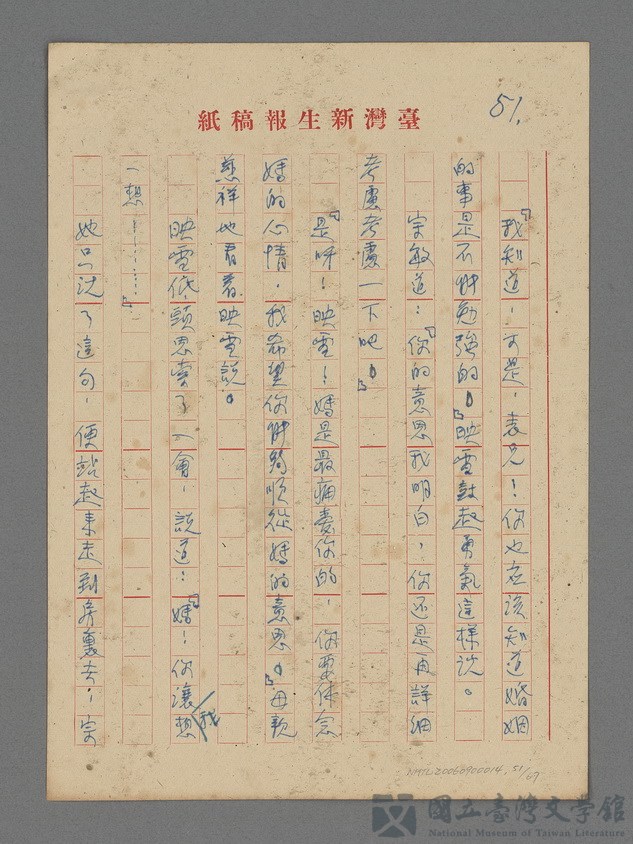 51.
臺灣新生報稿紙
「我知道，可是，表兄！你也应該知道婚姻
的事是不能勉強的。」映雪鼓起勇氣這樣说。
宗敏道：「你的意思我明白，你还是再詳細
考慮考慮一下吧。」
「是呀！映雪！媽是最痛愛你的，你要体念
媽的心情，我希望你能夠順從媽的意思。」母親
慈祥地看着映雪説。
映雪低頭思索了一會，説道：「媽！你讓我想
一想………」
她只说了這句，便站起来走到房裏去，宋
NMTL20060900014, 51/69
國立臺灣文學館
National Museum of Taiwan Literature